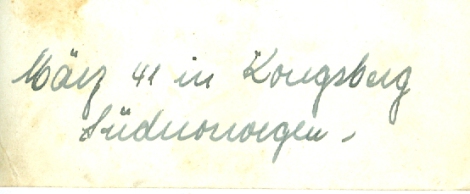 März 41 in Kongsberg
Südnorwegen -